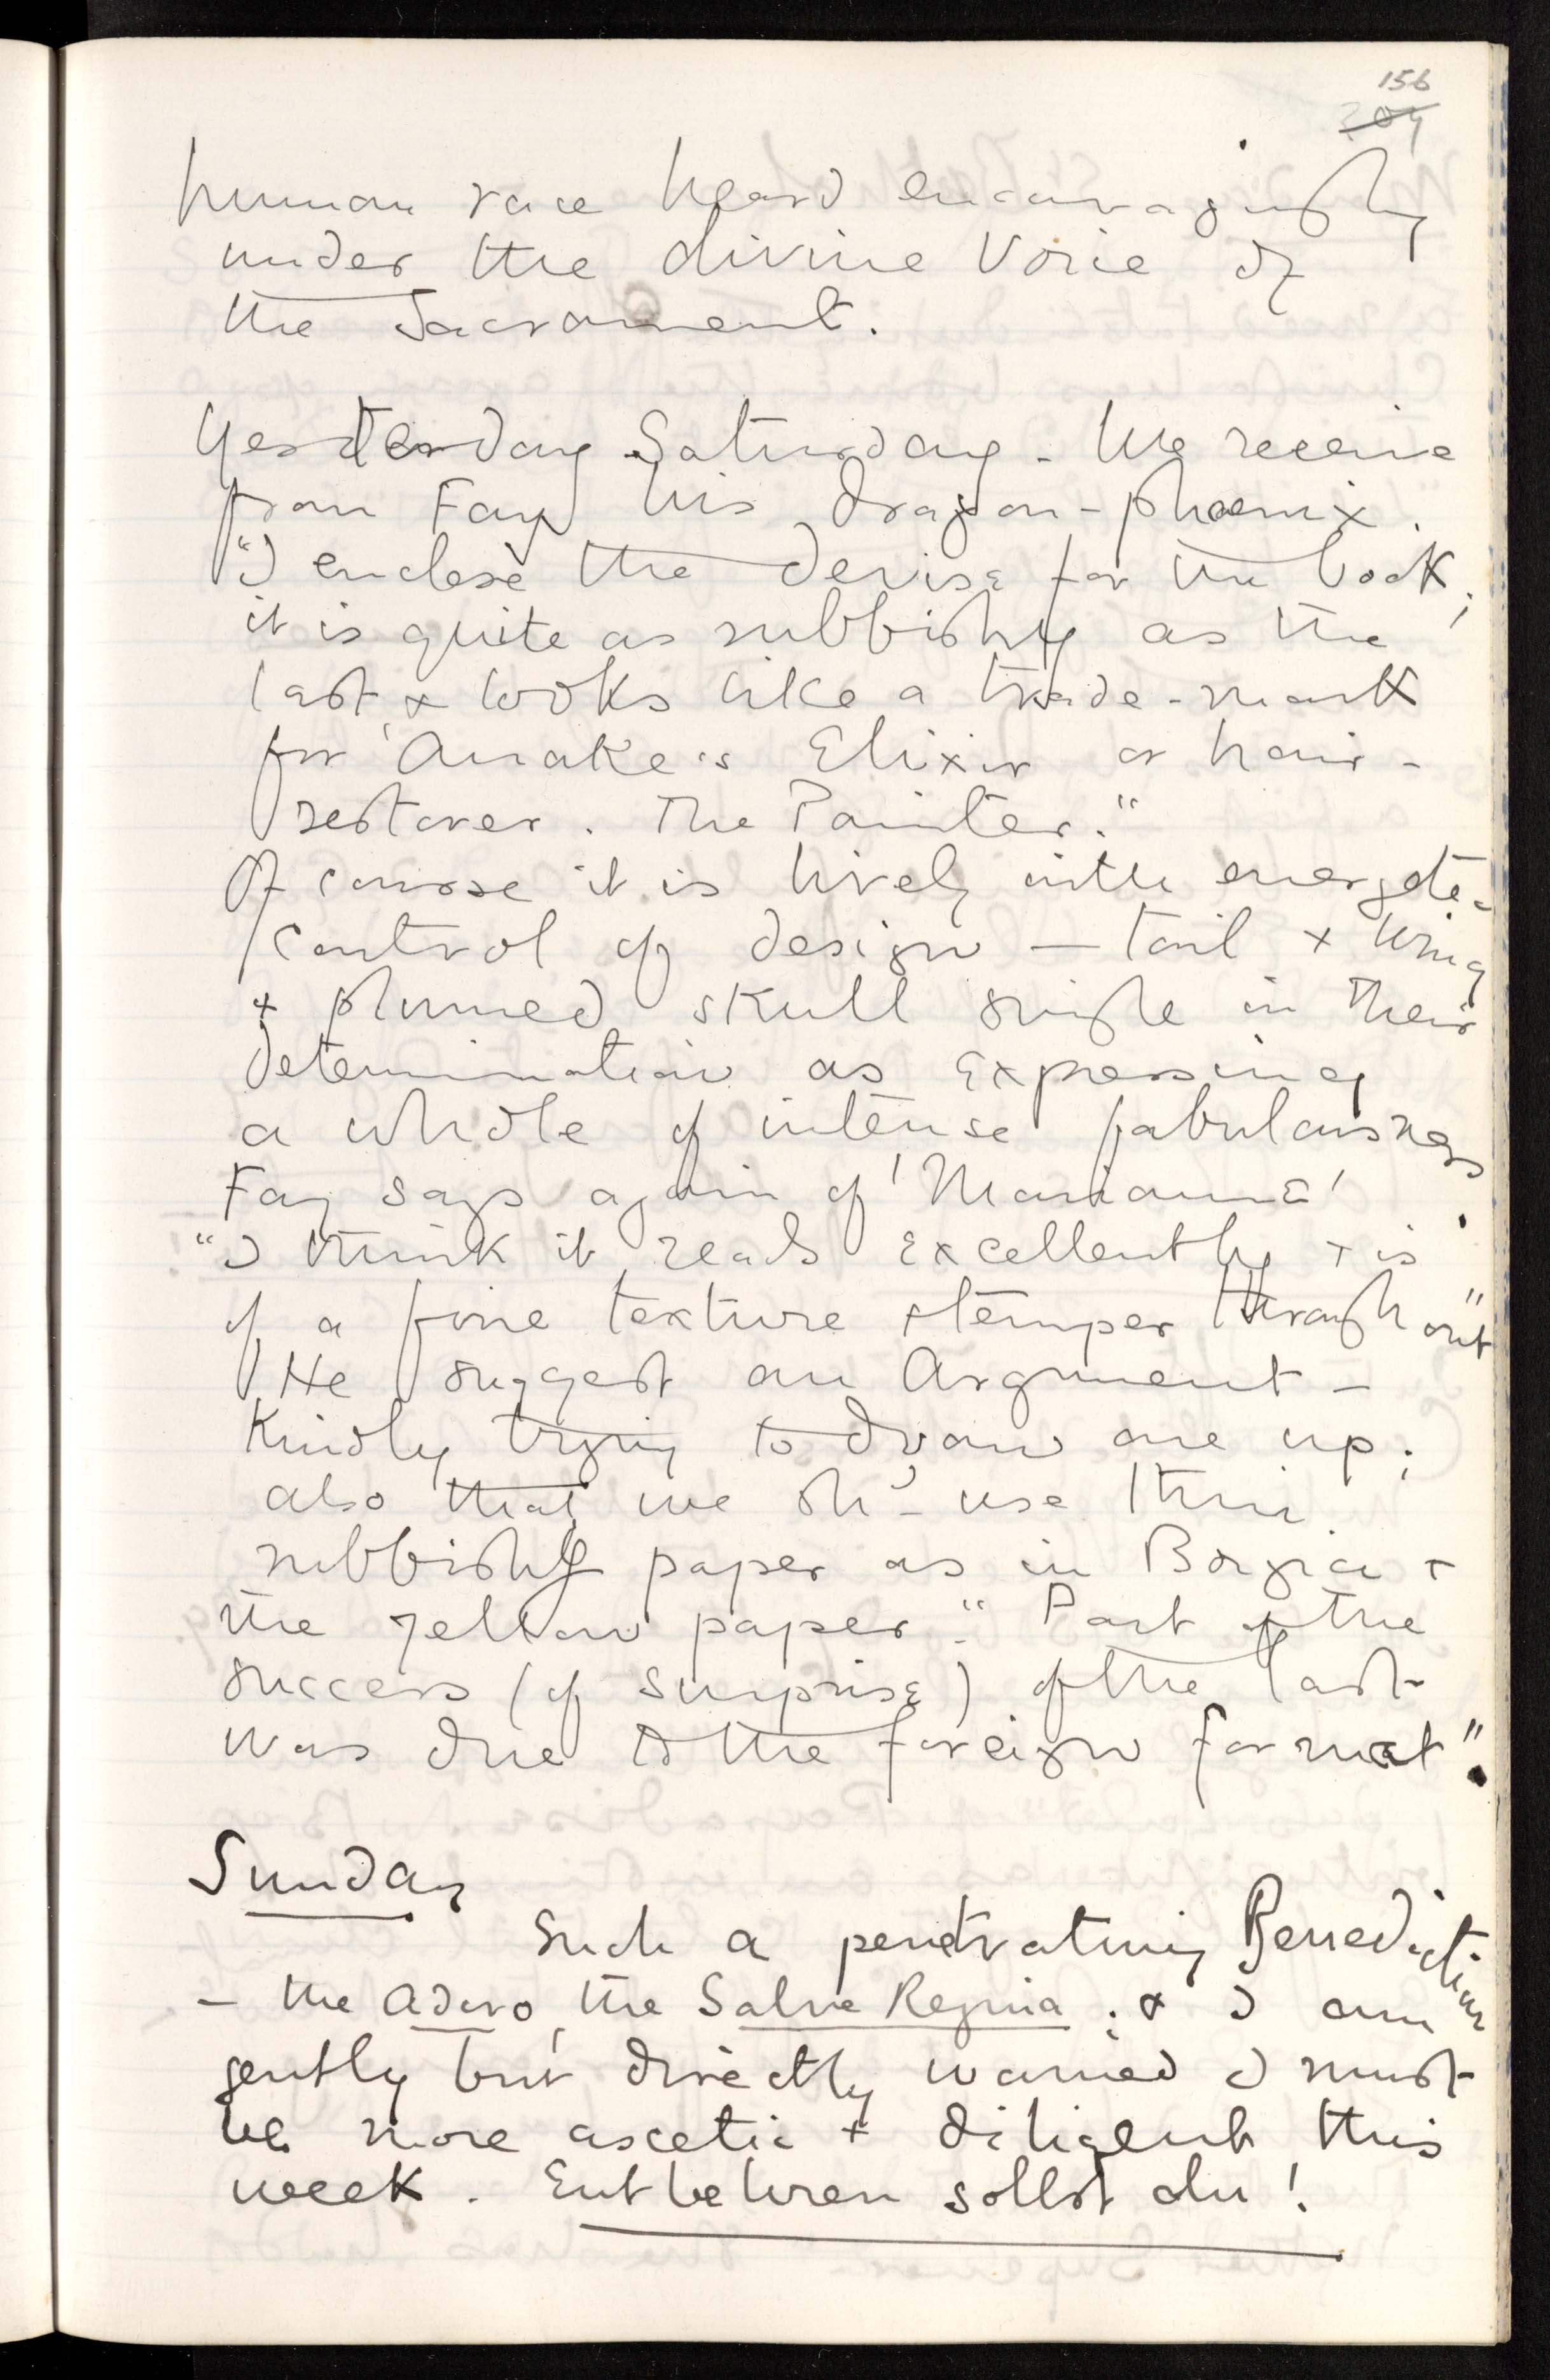 156
209
human race heard encouragingly
under the divine Voice of
the Sacrament.
Yesterday Saturday - We receive
from Fay his dragon-phoenix.
"I enclose the devise for the book;
it is quite as rubbishy as the
last & looks like a trade-mark
for Anake's Elixir or hair-
restorer. The Painter."
Of course it is lively with energetic
control of design — tail & wing
& plumed skull single in their
determination as expressing
a whole of intense fabulousness.
Fay says again of 'Mariamne'
"I think it reads excellently & is
of a fine texture & temper throughout"
He suggest an Argument —
Kindly trying to draw one up;
also that we shd use thin
rubbishy paper as in Borgia &
the yellow paper." Part of the
success (of surprise) of the last
was due to the foreign format".
Sunday
Such a penetrating Benediction
— the Adoro, the Salve Regina; & I am
gently but directly warned I must
be more ascetic & diligent this
week. Entbehren sollst du!